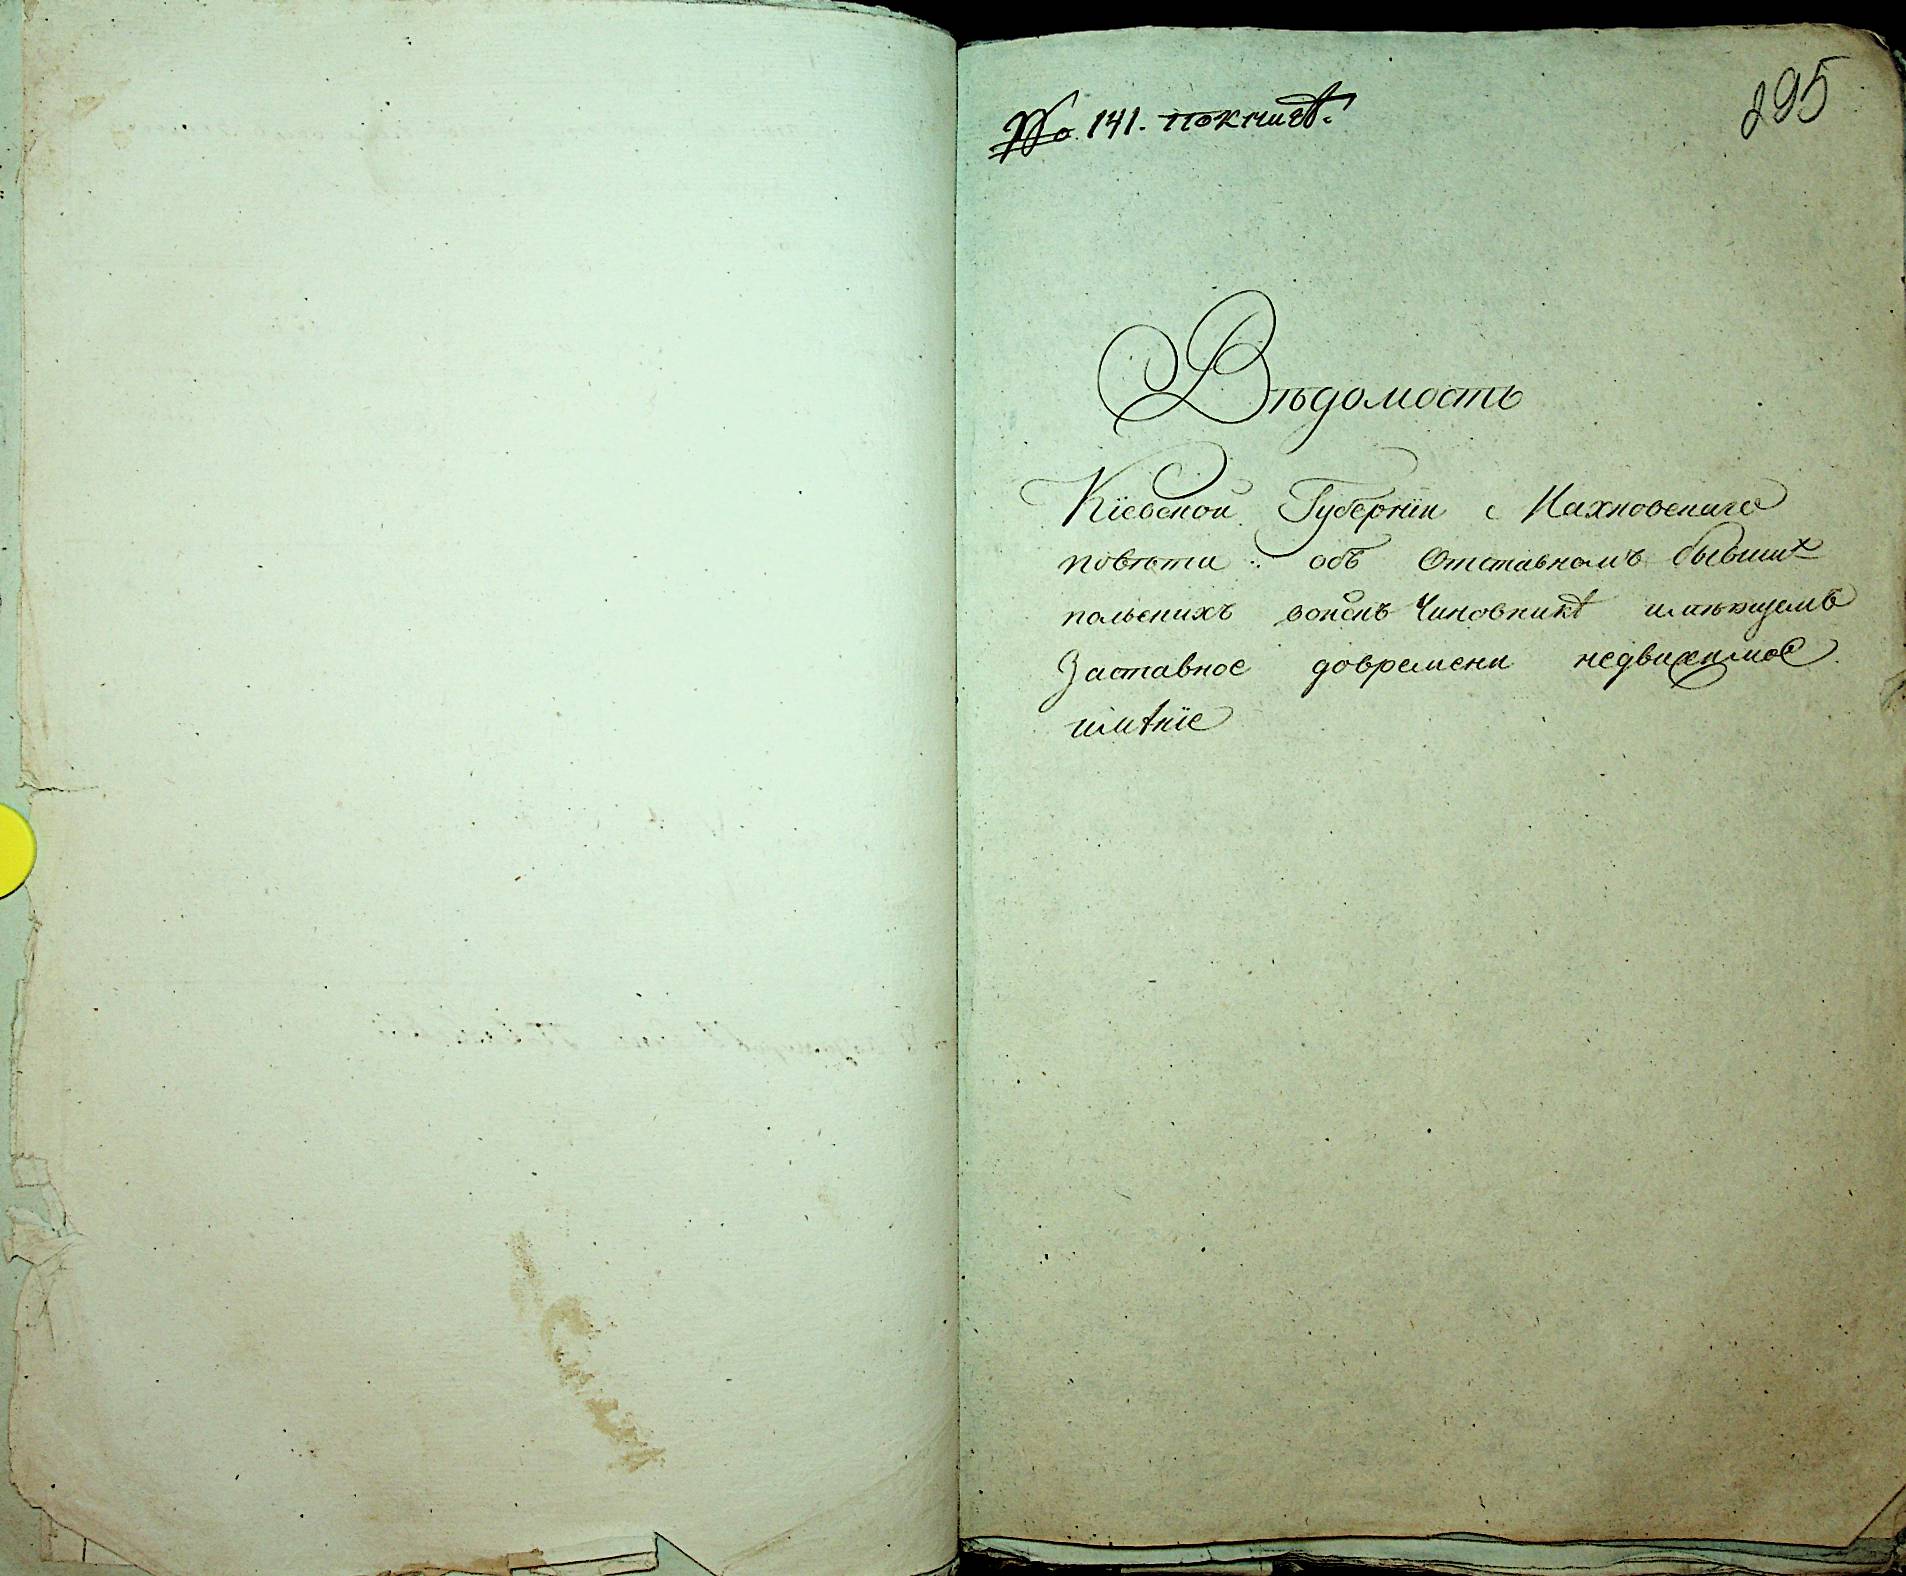 No. 141. по книгѣ.
295
Вѣдомость
Кіевской Губерніи Махновскаго
повѣта объ Отставномъ бывших
польскихъ войскъ Чиновникѣ имѣющемъ
Заставное довремени недвижимое
имѣніе